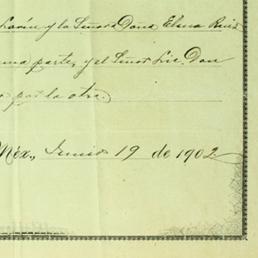 y la Señora Dona Elena Ruiz
una parte, y el Señor Lic. Don
por la otra.
Méx., Junio 19 de 1902.